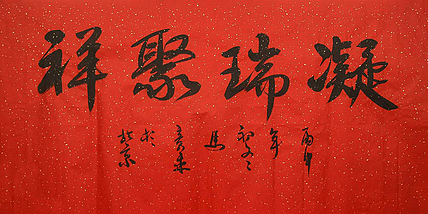 凝瑞聚祥
丙申年初冬马京生於北京